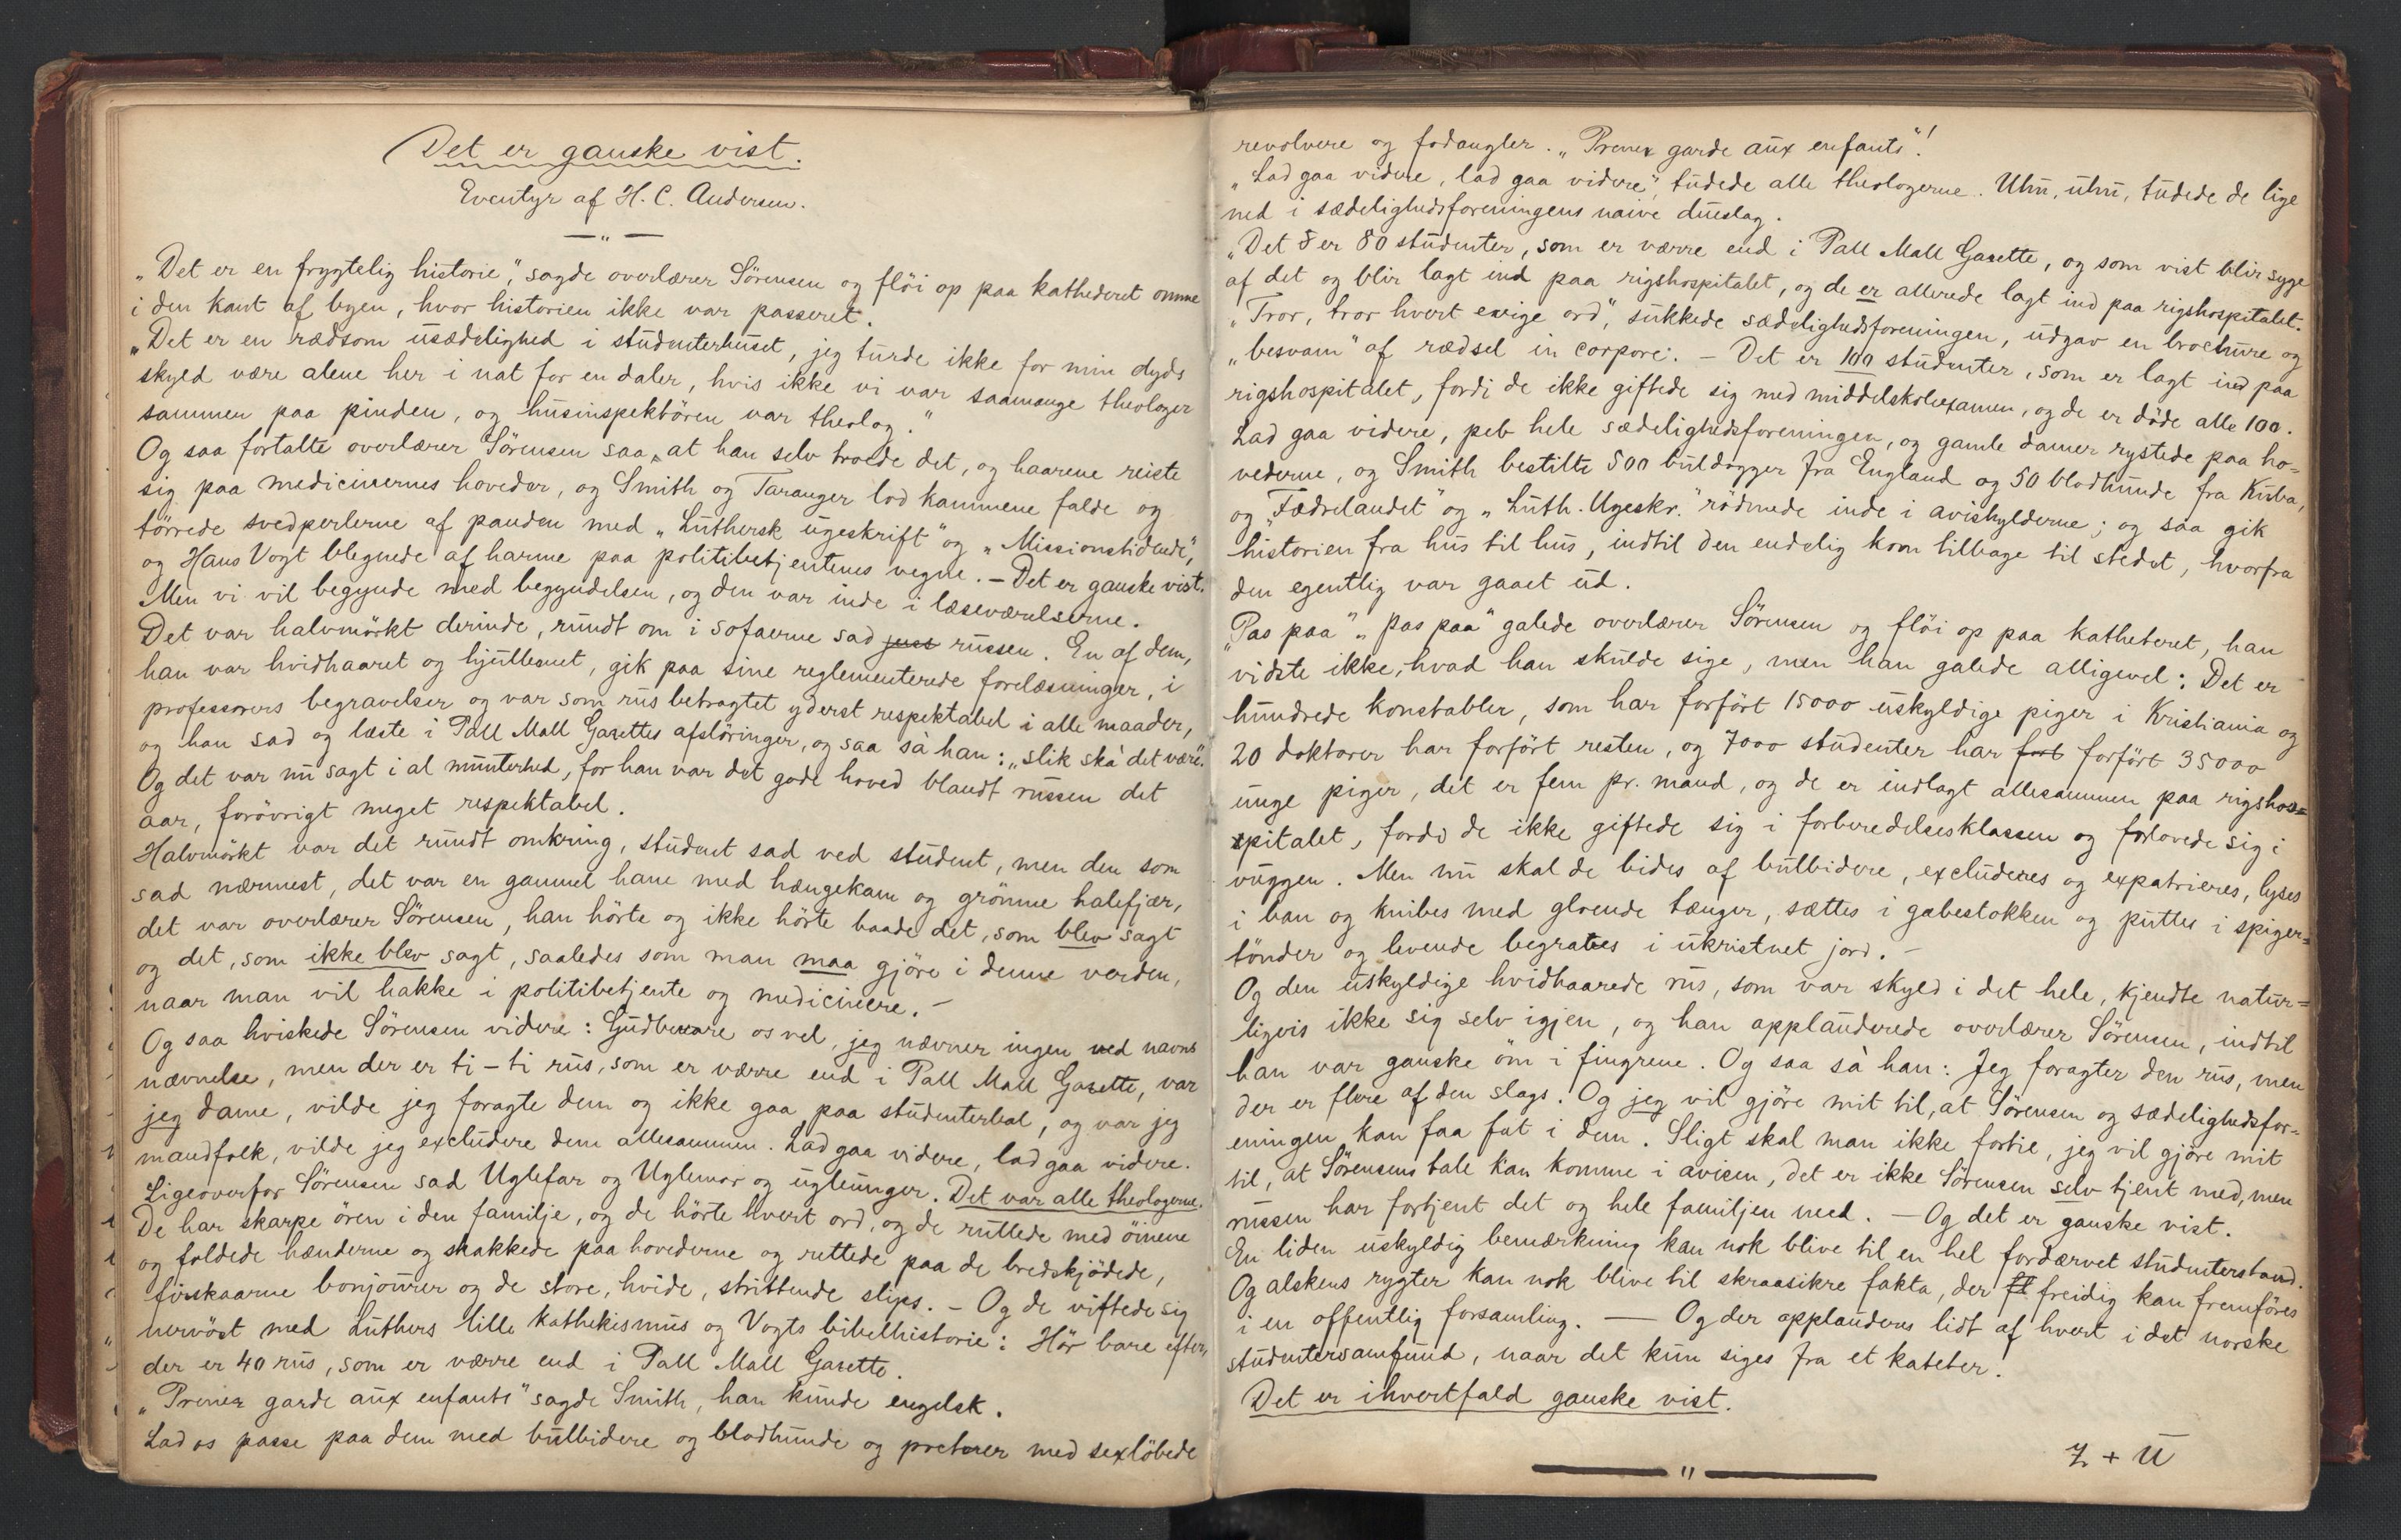 Det er ganske vist.
Eventyr af H. C. Andersen.
— " —
„Det er en frygtelig historie", sagde overlærer Sörensen og flöi op paa kathederet omme
i den kant af byen, hvor historien ikke var passeret.
„Det er en rædsom usædelighed i studenterhuset, jeg turde ikke for min dyds
skyld være alene her i nat for en daler, hvis ikke vi var saamange theologer
sammen paa pinden, og husinspektören var theolog."
Og saa fortalte overlærer Sörensen saa, at han selv troede det, og haarene reiste
sig paa medicinernes hoveder, og Smith og Taranger lod kammene falde og
törrede svedperlerne af panden med „Luthersk ugeskrift" og „Missionstidende",
og Hans Vogt blegnede af harme paa politibetjentenes vegne. – Det er ganske vist.
Men vi vil begynde med begyndelsen, og den var inde i læseværelserne.
Det var halvmörkt derinde, rundt om i sofaerne sad russen. En af dem,
han var hvidhaaret og hjulbenet, gik paa sine reglementerede forelæsninger, i
professorers begravelser og var som rus betragtet yderst respektabel i alle maader,
og han sad og læste i Pall Mall Gazettes aflöringer, og saa sà han: „slik ska' det være".
Og det var nu sagt i al munterhed, for han var det gode hoved blandt russen det
aar, forövrigt meget respektabel.
Halvmörkt var det rundt omkring, student sad ved student, men den som
sad nærmest, det var en gammel hane med hængekam og grönne halefjær,
det var overlærer Sörensen, han hörte og ikke hörte baade det, som blev sagt
og det, som ikke blev sagt, saaledes som man maa gjöre i denne verden,
naar man vil hakke i politibetjente og medicinere. –
Og saa hviskede Sörensen videre: Gudbevare os vel, jeg nævner ingen ved navns
nævnelse, men der er ti – ti rus, som er værre end i Pall Mall Gazette, var
jeg dame, vilde jeg foragte dem og ikke gaa paa studenterbal, og var jeg
mandfolk, vilde jeg excludere dem allesammen. Lad gaa videre, lad gaa videre.
Ligeoverfor Sörensen sad Uglefar og Uglemor og ugleunger. Det var alle theologerne.
De har skarpe ören i den familje, og de hörte hvert ord, og de rullede med öinene
og foldede hænderne og skakkede paa hovederne og rettede paa de bredskjödede,
firskaarne bonjourer og de store, hvide, strittende slips. – Og de viftede sig
nervöst med Luthers lille kathekismus og Vogts bibelhistorie: Hör bare efter,
der er 40 rus, som er værre end i Pall Mall Gazette.
„Prenez garde aux enfants" sagde Smith, han kunde engelsk.
Lad os passe paa dem med bulbidere og blodhunde og med sexlöbede
revolvere og fodangler. „Prenez garde aux enfants"!
„Lad gaa videre, lad gaa videre," tudede alle theologerne. Uhu, uhu, tudede de lige
ned i sædelighedsforeningens naive dueslag.
„Det er 80 studenter, som er værre end i Pall Mall Gazette, og som vist blir syge
af det og blir lagt ind paa rigshospitalet, og de er allerede lagt ind paa rigshospitalet.
„Tror, tror hvert evige ord", sukkede sædelighedsforeningen, udgav en brochure og
„besvam" af rædsel in corpore. – Det er 100 studenter, som er lagt ind paa
rigshospitalet, fordi de ikke giftede sig med middelskolexamen, og de er döde alle 100.
Lad gaa videre, peb hele sædelighedsforeningen, og gamle damer rystede paa ho=
vederne, og Smith bestilte 500 buldogger fra England og 50 blodhunde fra Kuba,
og „Fædrelandet" og „Luth. Ugeskr." rödmede inde i avishylderne; og saa gik
historien fra hus til hus, indtil den endelig kom tilbage til stedet, hvorfra
den egentlig var gaaet ud.
„Pas paa" „pas paa" galede overlærer Sörensen og flöi op paa katheteret, han
vidste ikke, hvad han skulde sige, men han galede alligevel: Det er
hundrede konstabler, som har forfört 15000 uskyldige piger i Kristiania og
20 doktorer har forfört resten, og 7000 studenter har fort forfört 35000
unge piger, det er fem pr. mand, og de er indlagt allesammen paa rigshos=
spitalet, fordi de ikke giftede sig i forberedelsesklassen og forlovede sig i
vuggen. Men nu skal de bides af bulbidere, excluderes og expatrieres, lyses
i ban og knibes med gloende tænger, sættes i gabestokken og puttes i spiger=
tönder og levende begraves i ukristnet jord. –
Og den uskyldige hvidhaarede rus, som var skyld i det hele, kjendte natur=
ligvis ikke sig selv igjen, og han applauderede overlærer Sörensen, indtil
han var ganske öm i fingrene. Og saa sà han: Jeg foragter den rus, men
der er flere af den slags. Og jeg vil gjöre mit til, at Sörensen og sædelighedsfor=
eningen kan faa fat i dem. Sligt skal man ikke fortie, jeg vil gjöre mit
til, at Sörensens tale kan komme i avisen, det er ikke Sörensen selv tjent med, men
russen har fortjent det og hele familjen med. — Og det er ganske vist.
En liden uskyldig bemærkning kan nok blive til en hel fordærvet studenterstand.
Og alskens rygter kan nok blive til skraasikre fakta, der freidig kan fremföres
i en offentlig forsamling. — Og der applauderes lidt af hvert i det norske
studentersamfund, naar det kun siges fra et kateter!
Det er ihvertfald ganske vist.
Z + U
— " —